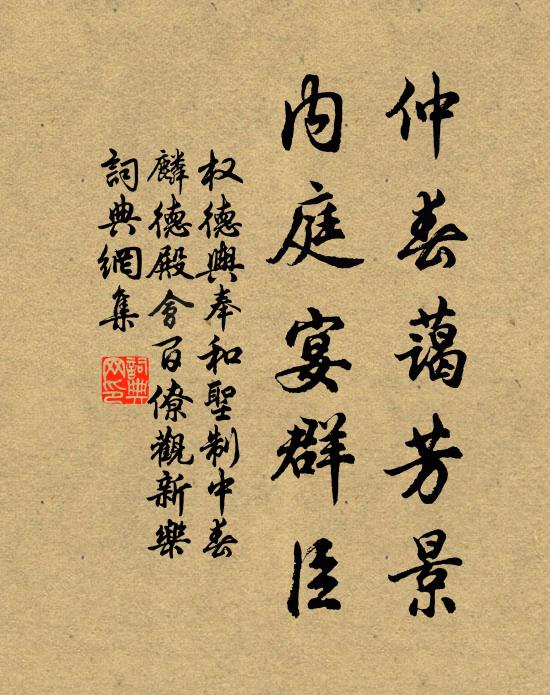 仲春藹芳景
内庭宴群臣
权德輿奉和聖制中春
麟德殿會百僚觀新樂
詞典網集
詞典網印